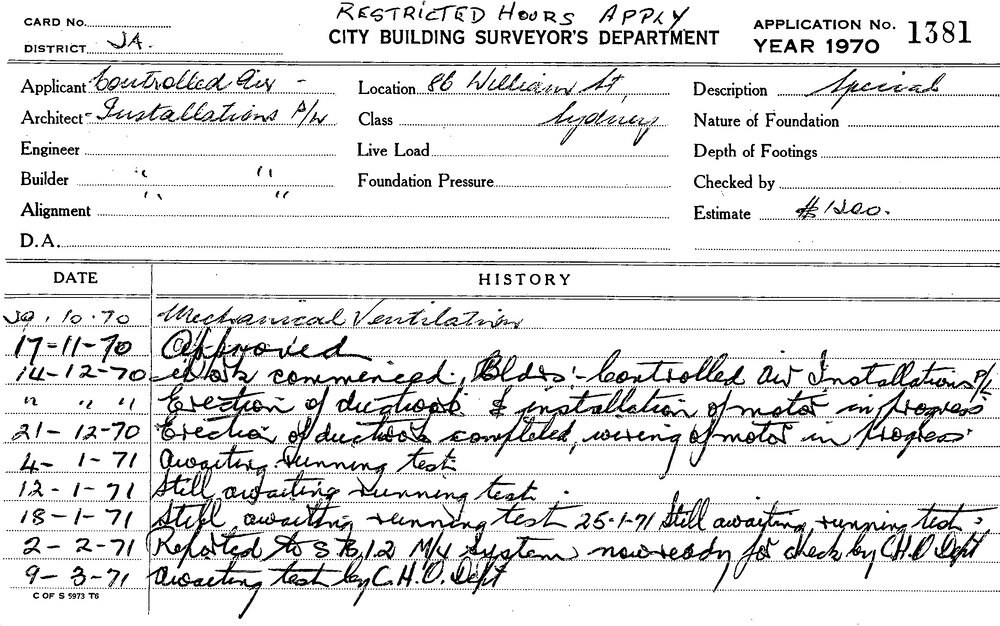 RESTRICTED HOURS APPLY
CARD No.
CITY BUILDING SURVEYOR'S DEPARTMENT
APPLICATION No. 1381
DISTRICT JA.
YEAR 1970
Applicant Controlled Air -
Location 86 William St,
Description Special
Architect - Installations P/L
Class Sydney
Nature of Foundation
Engineer
Live Load
Depth of Footings
Builder " "
Foundation Pressure
Checked by
" "
Alignment
Estimate $1200.
D.A.
DATE HISTORY
10.70 Mechanical Ventilation
17-11-70 Approved
14-12-70 Work commenced. Bldrs:- Controlled Air Installations P/L
" " " Erection of ductwork & installation of motor in progress
21-12-70 Erection of ductwork completed, wiring of motor in progress
4-1-71 Awaiting running test
12-1-71 Still awaiting running test.
18-1-71 Still awaiting running test 25-1-71 Still awaiting running test.
2-2-71 Reported to M/V System now ready for check by C.H.O Dept
9-3-71 Awaiting test by C.H.O. Dept
C OF S 5973 T6